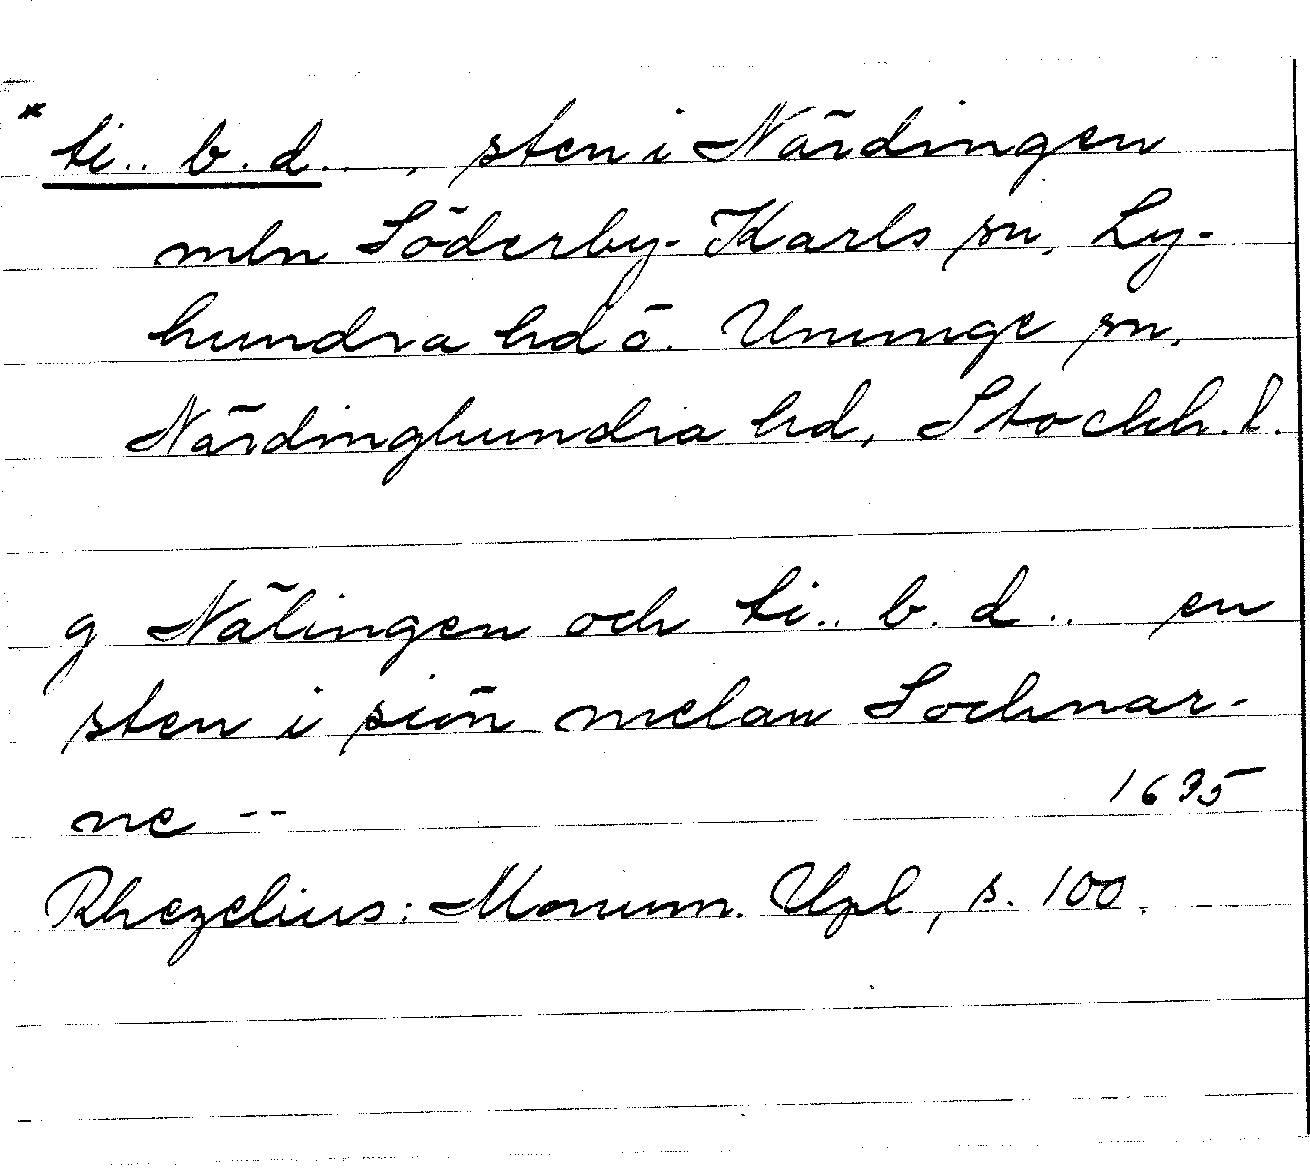 * ti.. b. d.. , sten i Närdingen
mln Söderby-Karls sn, Ly-
hundra hd o. Ununge sn,
Närdinghundra hd, Stockh. l.
g Nälingen och ti.. b. d.. en
sten i siön melan Sochnar-
ne -- 1635
Rhezelius: Monum. Upl, s. 100.